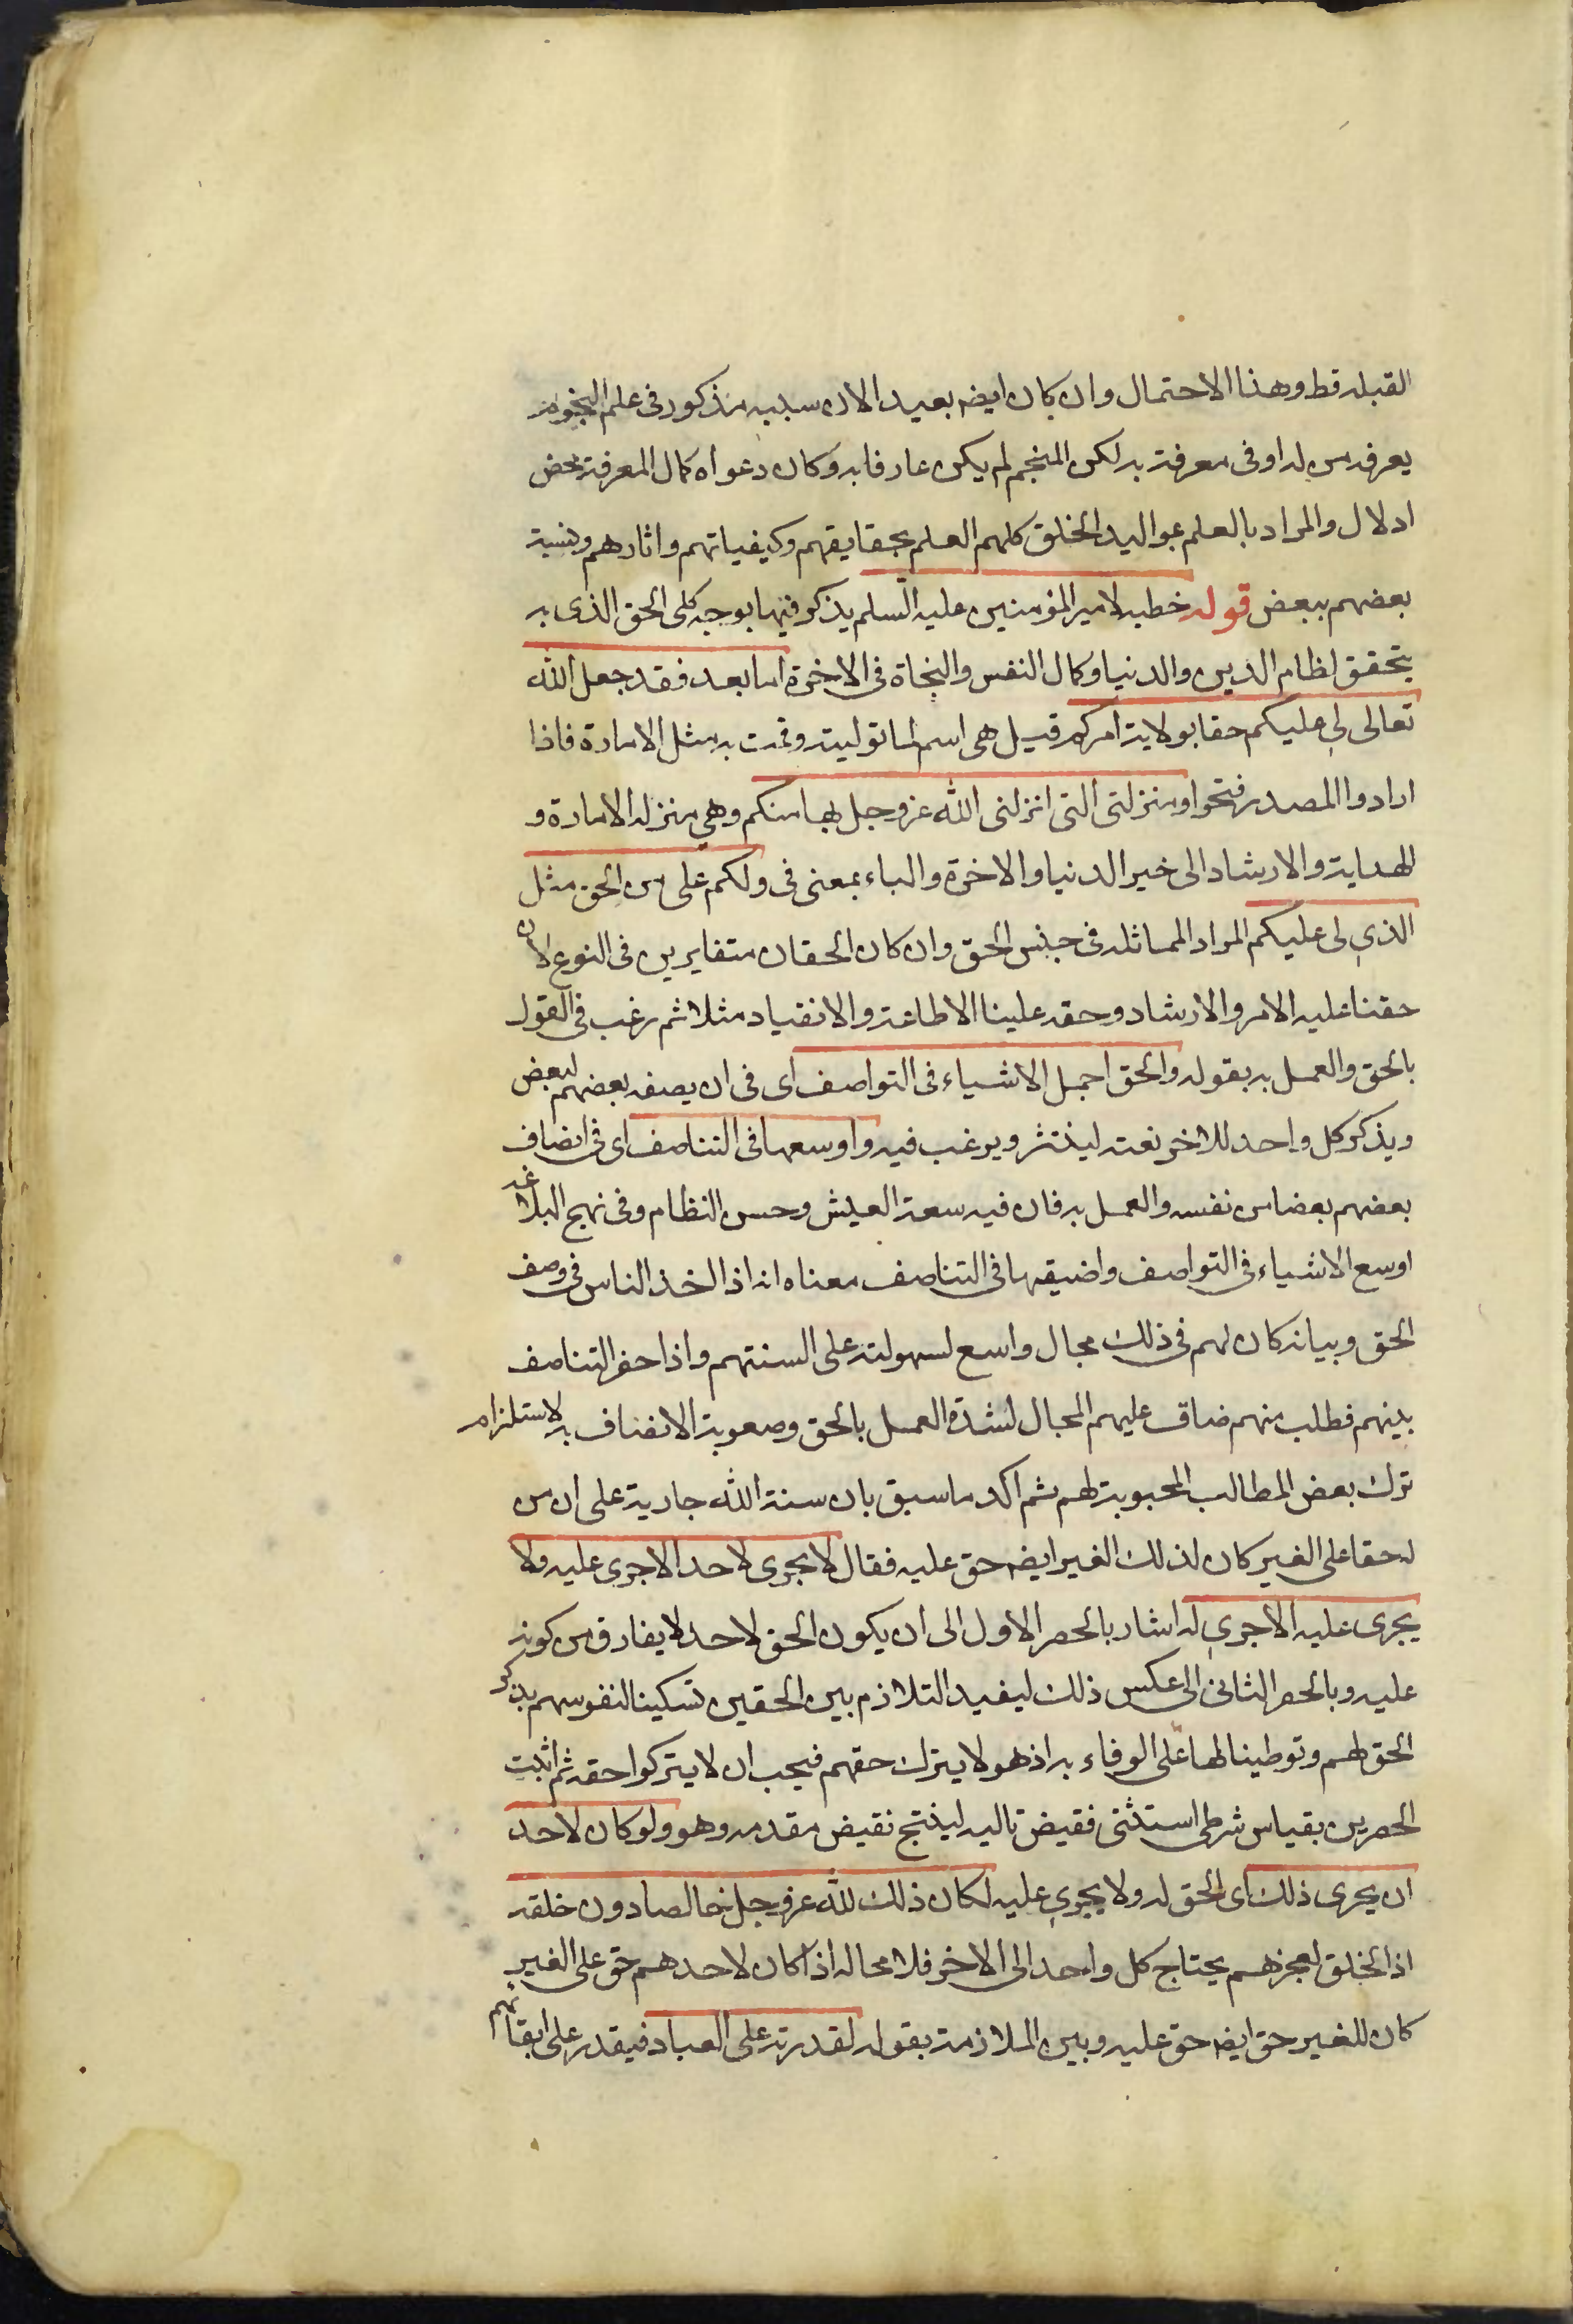 القبله قط وهذا الاحتمال وان كان ايضه بعيد الا ان سببه مذكور فى علم النجوم
يعرفه من له اوفى معرفة به لكن المنجم لم يكن عارفا به وكان دعواه كمال المعرفة محض
ادلال والمراد بالعلم بمواليد الخلق كلهم العلم بحقايقهم وكيفياتهم واثارهم ونسبة
بعضهم ببعض قوله خطبه لامير المؤمنين عليه السلم يذكر فيها بوجه كلى الحق الذى به
يتحقق نظام الدين والدنيا وكمال النفس والنجاة فى الاخرة اما بعد فقد جعل الله
تعالى لى عليكم حقا بولاية امركم قيل هى اسم لما توليته وقمت به مثل الامارة فاذا
ارادوا المصدر فتحوا ومنزلتى التى انزلنى الله عز وجل بها منكم وهى منزله الامارة و
الهداية والارشاد الى خير الدنيا والاخرة والباء بمعنى فى ولكم على من الحق مثل
الذى لى عليكم المراد المماثله فى جنس الحق وان كان الحقان متغايرين فى النوع لان
حقنا عليه الامر والارشاد وحقه علينا الاطاعة والانقياد مثلا ثم رغب فى القول
بالحق والعمل به بقوله والحق اجمل الاشياء فى التواصف اى فى ان يصفه بعضهم لبعض
ويذكر كل واحد للاخر نعته لينتشر ويرغب فيه واوسعها فى التناصف اى فى انصاف
بعضهم بعضا من نفسه والعمل به فان فيه سعة العيش وحسن النظام وفى نهج البلاغه
اوسع الاشياء فى التواصف واضيقها فى التناصف معناه انه اذا اخذ الناس فى وصف
الحق وبيانه كان لهم فى ذلك مجال واسع لسهولته على السنتهم واذا حضر التناصف
بينهم فطلب منهم ضاق عليهم المجال لشدة العمل بالحق وصعوبة الانصاف به لاستلزامه
ترك بعض المطالب المحبوبة لهم ثم اكد ما سبق بان سنة الله جارية على ان من
له حقا على الغير كان لذلك الغير ايضه حق عليه فقال لا يجرى لاحد الا جرى عليه ولا
يجرى عليه الا جرى له اشار بالحصر الاول الى ان يكون الحق لاحد لا يفارق من كونه
عليه وبالحصر الثانى الى عكس ذلك ليفيد التلازم بين الحقين تسكينا لنفوسهم بذكر
الحق لهم وتوطينا لها على الوفاء به اذ هو لا يترك حقهم فيجب ان لا يتركوا حقه ثم اثبت
الحصرين بقياس شرطى استثنى نقيض تاليه لينتج نقيض مقدمه وهو ولو كان لاحد
ان يجرى ذلك اى الحق له ولا يجرى عليه لكان ذلك لله عز وجل خالصا دون خلقه
اذ الخلق لعجزهم يحتاج كل واحد الى الاخر فلا محاله اذا كان لاحدهم حق على الغير
كان للغير حق ايضه حق عليه وبين الملازمة بقوله لقدرته على العباد فيقدر على ابقائهم